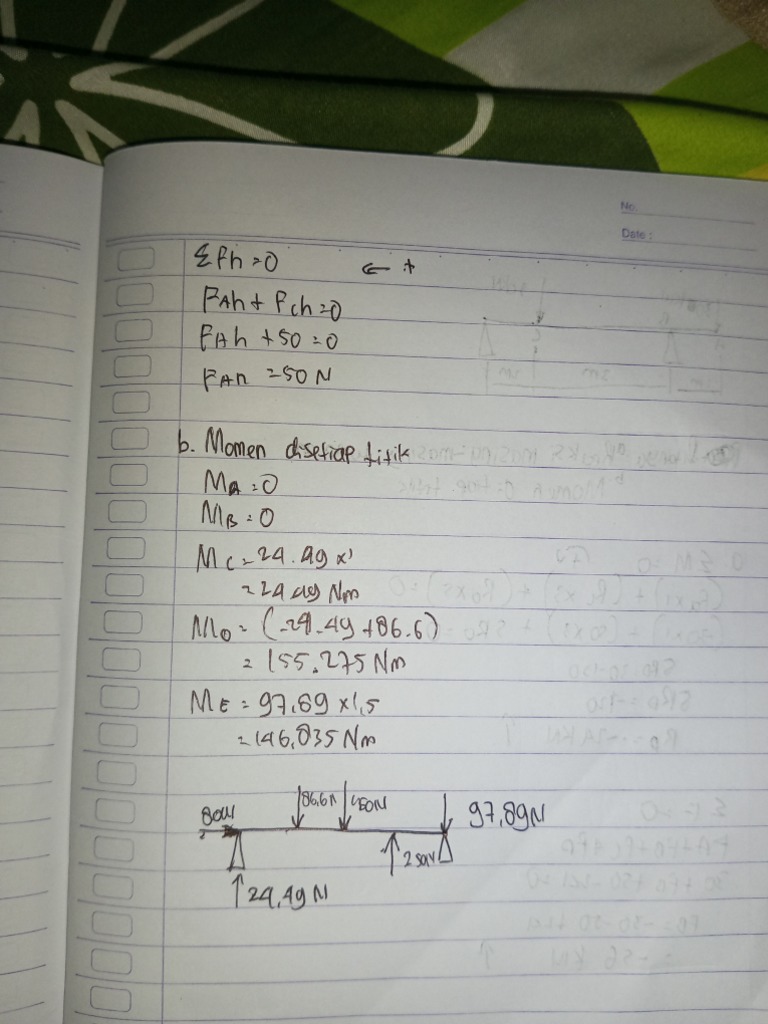 No.
Date :
Σ Fh = 0 ← +
FAh + Fch = 0
FAh + 50 = 0
FAh = 50 N
b. Momen disetiap titik
MA = 0
MB = 0
Mc = 24.49 x 1
= 24.49 Nm
MD = (-24.49 + 86.6)
= 155.275 Nm
ME = 97,89 x 1,5
= 146,835 Nm
86,6N 97,89N
24,49 N